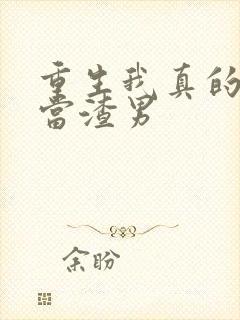 重生我真的
当渣男
余盼